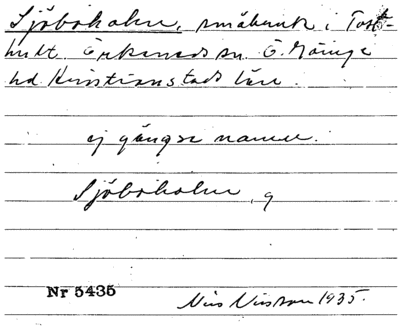 Sjöboholm, småbruk i Tost-
hult. Örkeneds sn. Ö. Göinge
hd Kristianstads län.
ej gängse namn.
Sjöboholm, g
Nr 5435
Nils Nilsson 1935.